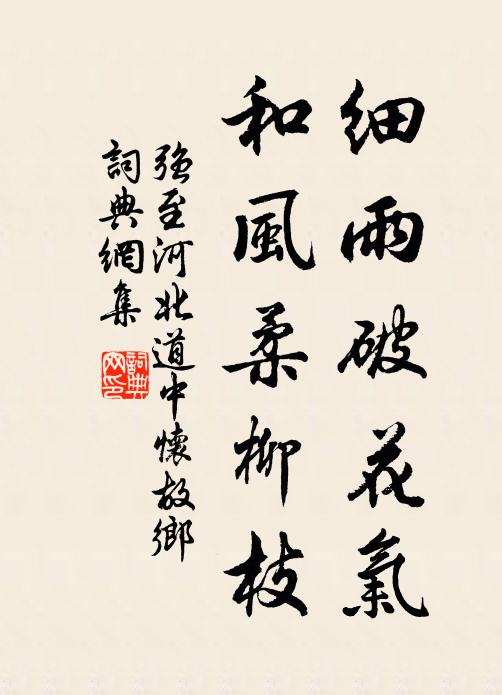 細雨破花氣
和風柔柳枝
強至河北道中懷故鄉
詞典網集
詞典
网印